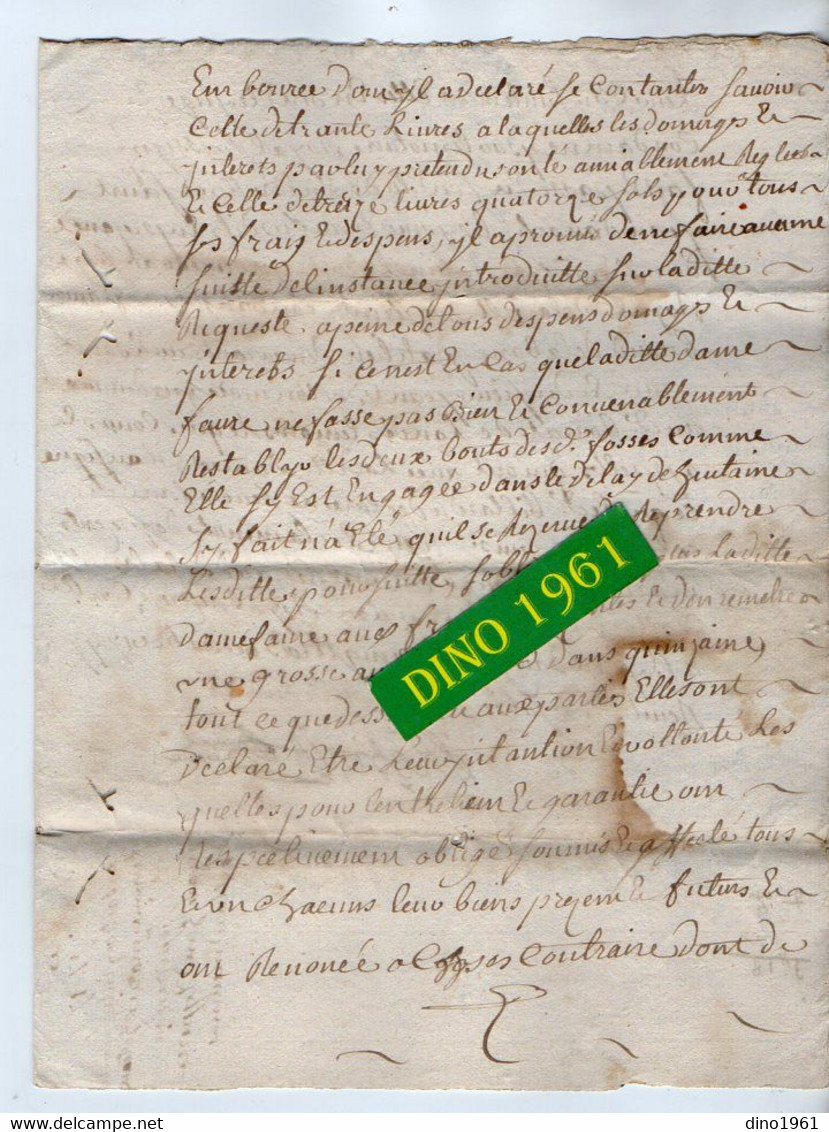 Em bourcé dom jl a declaré se contanter savoir
Celle de trante Livres a laquelles les domages Et
jnterets par luy pretendus on té amiablement Reglees
Et Celle de treize livres quatorze sols pour tous
ses frais Et despens, jl a promis de ne faire aucune
suitte de linstance jntroduitte sur laditte
Requeste a peine de tous despens domages Et
jnterets si ce nest En cas que laditte dame
faure ne fasse pas Bien Et Convenablement
Restablyr les deux bouts desd. fosses Comme
Elle sy Est Engagée dans le delay de huitaine
sy fait n'a Eté quil se Rezerve de Reprendre
Lesditte poursuitte, sobl laditte
dame faure aux fr Et den remetre
une grosse au dans quinzaine,
tout ce que dess aux parties Elles ont
declaré Etre Leur jntantion Et vollonté Les
quelles pour lentretien Et garantie om
Respectivement obligé soumis Et affecté tous
Et un chacuns leur biens prezem Et futurs Et
om Renoncé a Choses Contraire dont de
DINO 1961
dino1961